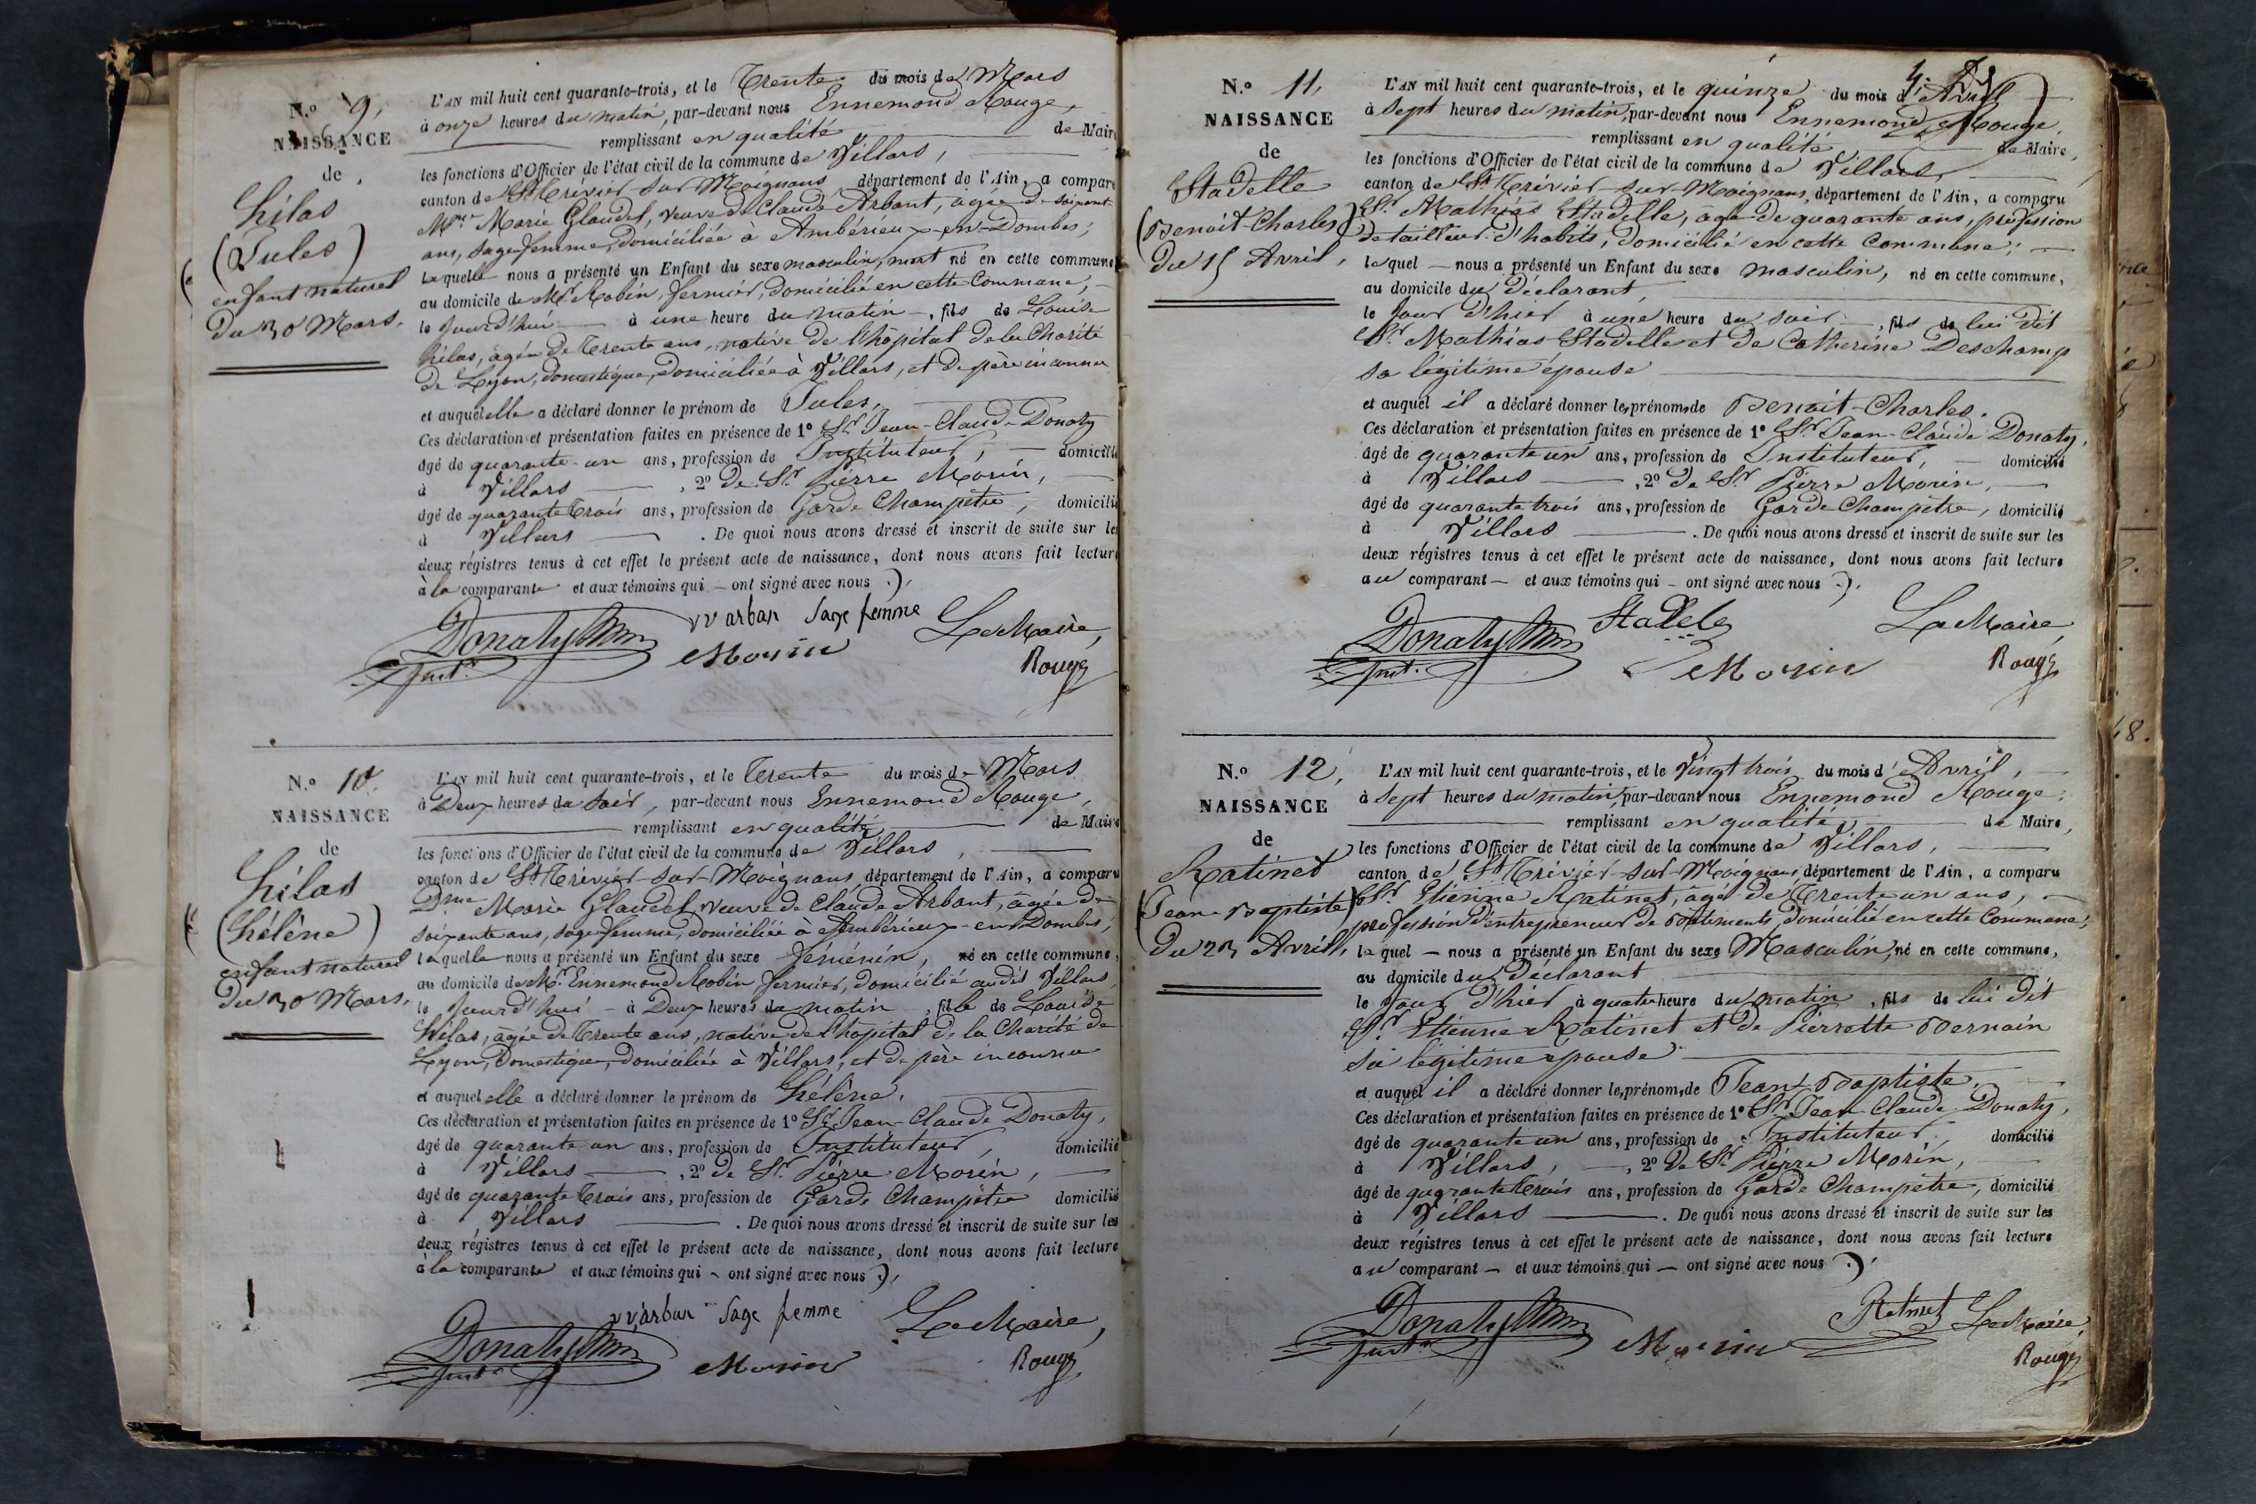 N.º 9,
NAISSANCE
de
hilas
(Jules)
enfant naturel
du 30 Mars.
L'AN mil huit cent quarante-trois, et le Trente du mois de Mars
à onze heures du matin, par-devant nous Ennemond Rouge,
remplissant en qualité de Maire
les fonctions d'Officier de l'état civil de la commune de Villars,
canton de St Trivier sur Moignans, département de l'Ain, a comparu
Marie Glaudel, veuve de Claude Arbant, âgée de soixante
ans, sage femme, domiciliée à Ambérieux-en-Dombes;
laquelle nous a présenté un Enfant du sexe masculin, mort né en cette commune
au domicile de Mr Robin, fermier, domicilié en cette Commune,
le jourd'hui à une heure du matin, fils de Louise
hilas, âgée de trente ans, native de l'hôpital de la Charité
de Lyon, domestique, domiciliée à Villars, et de père inconnu
et auquel elle a déclaré donner le prénom de Jules.
Ces déclaration et présentation faites en présence de 1º Sr Jean-Claude Donaty
âgé de quarante-un ans, profession de Instituteur, domicilié
à Villars, 2º de Sr Pierre Morin,
âgé de quarante trois ans, profession de Garde Champêtre, domicilié
à Villars. De quoi nous avons dressé et inscrit de suite sur les
deux régistres tenus à cet effet le présent acte de naissance, dont nous avons fait lecture
à la comparante et aux témoins qui ont signé avec nous.
vv arban sage femme
Donaty
Inst.
Morin
Le Maire,
Rouge
N.º 10.
NAISSANCE
de
hilas
(hélène)
enfant naturel
du 30 Mars.
L'AN mil huit cent quarante-trois, et le Trente du mois de Mars
à Deux heures du soir, par-devant nous Ennemond Rouge,
remplissant en qualité de Maire
les fonctions d'Officier de l'état civil de la commune de Villars,
canton de St Trivier sur Moignans, département de l'Ain, a comparu
Dme Marie Glaudel veuve de Claude Arbant, âgée de
soixante ans, sage femme, domiciliée à Ambérieux-en-Dombes,
laquelle nous a présenté un Enfant du sexe féminin, né en cette commune,
au domicile de Mr Ennemond Robin, fermier, domicilié audit Villars
le jourd'hui à Deux heures du matin, fille de Louise
hilas, âgée de trente ans, native de l'hôpital de la Charité de
Lyon, Domestique, domiciliée à Villars, et de père inconnu
et auquel elle a déclaré donner le prénom de hélène.
Ces déclaration et présentation faites en présence de 1º Sr Jean-Claude Donaty,
âgé de quarante-un ans, profession de Instituteur, domicilié
à Villars, 2º de Sr Pierre Morin,
âgé de quarante trois ans, profession de Garde Champêtre domicilié
à Villars. De quoi nous avons dressé et inscrit de suite sur les
deux régistres tenus à cet effet le présent acte de naissance, dont nous avons fait lecture
à la comparante et aux témoins qui ont signé avec nous.
vv arban sage femme
Donaty
Inst.
Morin
Le Maire,
Rouge
N.º 11,
NAISSANCE
de
Stadelle
(Benoit Charles)
du 15 Avril,
L'AN mil huit cent quarante-trois, et le quinze du mois d'Avril
à sept heures du matin, par-devant nous Ennemond Rouge,
remplissant en qualité de Maire,
les fonctions d'Officier de l'état civil de la commune de Villars,
canton de St Trivier-sur-Moignans, département de l'Ain, a comparu
Sr Mathias Stadelle, âgé de quarante ans, profession
de tailleur d'habits, domicilié en cette Commune;
lequel nous a présenté un Enfant du sexe masculin, né en cette commune,
au domicile du Déclarant,
le jour d'hier à une heure du soir, fils de lui dit
Sr Mathias Stadelle et de Catherine Deschamp
sa légitime épouse
et auquel il a déclaré donner les prénoms de Benoit-Charles.
Ces déclaration et présentation faites en présence de 1º Sr Jean-Claude Donaty,
âgé de quarante un ans, profession de Instituteur, domicilié
à Villars, 2º de Sr Pierre Morin,
âgé de quarante trois ans, profession de Garde Champêtre, domicilié
à Villars. De quoi nous avons dressé et inscrit de suite sur les
deux régistres tenus à cet effet le présent acte de naissance, dont nous avons fait lecture
au comparant et aux témoins qui ont signé avec nous.
Donaty
Inst.
Stadele
Morin
Le Maire,
Rouge
N.º 12,
NAISSANCE
de
Ratinet
(Jean-Baptiste)
du 23 Avril,
L'AN mil huit cent quarante-trois, et le Vingt trois du mois d'Avril,
à sept heures du matin, par-devant nous Ennemond Rouge,
remplissant en qualité de Maire,
les fonctions d'Officier de l'état civil de la commune de Villars,
canton de St Trivier-sur-Moignans, département de l'Ain, a comparu
Sr Etienne Ratinet, âgé de Trente un ans,
profession d'entrepreneur de bâtiments, domicilié en cette Commune;
lequel nous a présenté un Enfant du sexe Masculin, né en cette commune,
au domicile du Déclarant
le jour d'hier à quatre heure du matin, fils de lui dit
Sr Etienne Ratinet et de Pierrette Bernain
sa légitime épouse
et auquel il a déclaré donner les prénoms de Jean-Baptiste.
Ces déclaration et présentation faites en présence de 1º Sr Jean Claude Donaty,
âgé de quarante un ans, profession de Instituteur, domicilié
à Villars, 2º de Sr Pierre Morin,
âgé de quarante trois ans, profession de Garde Champêtre, domicilié
à Villars. De quoi nous avons dressé et inscrit de suite sur les
deux régistres tenus à cet effet le présent acte de naissance, dont nous avons fait lecture
au comparant et aux témoins qui ont signé avec nous.
Donaty
Inst.
Morin
Ratinet
Le Maire
Rouge